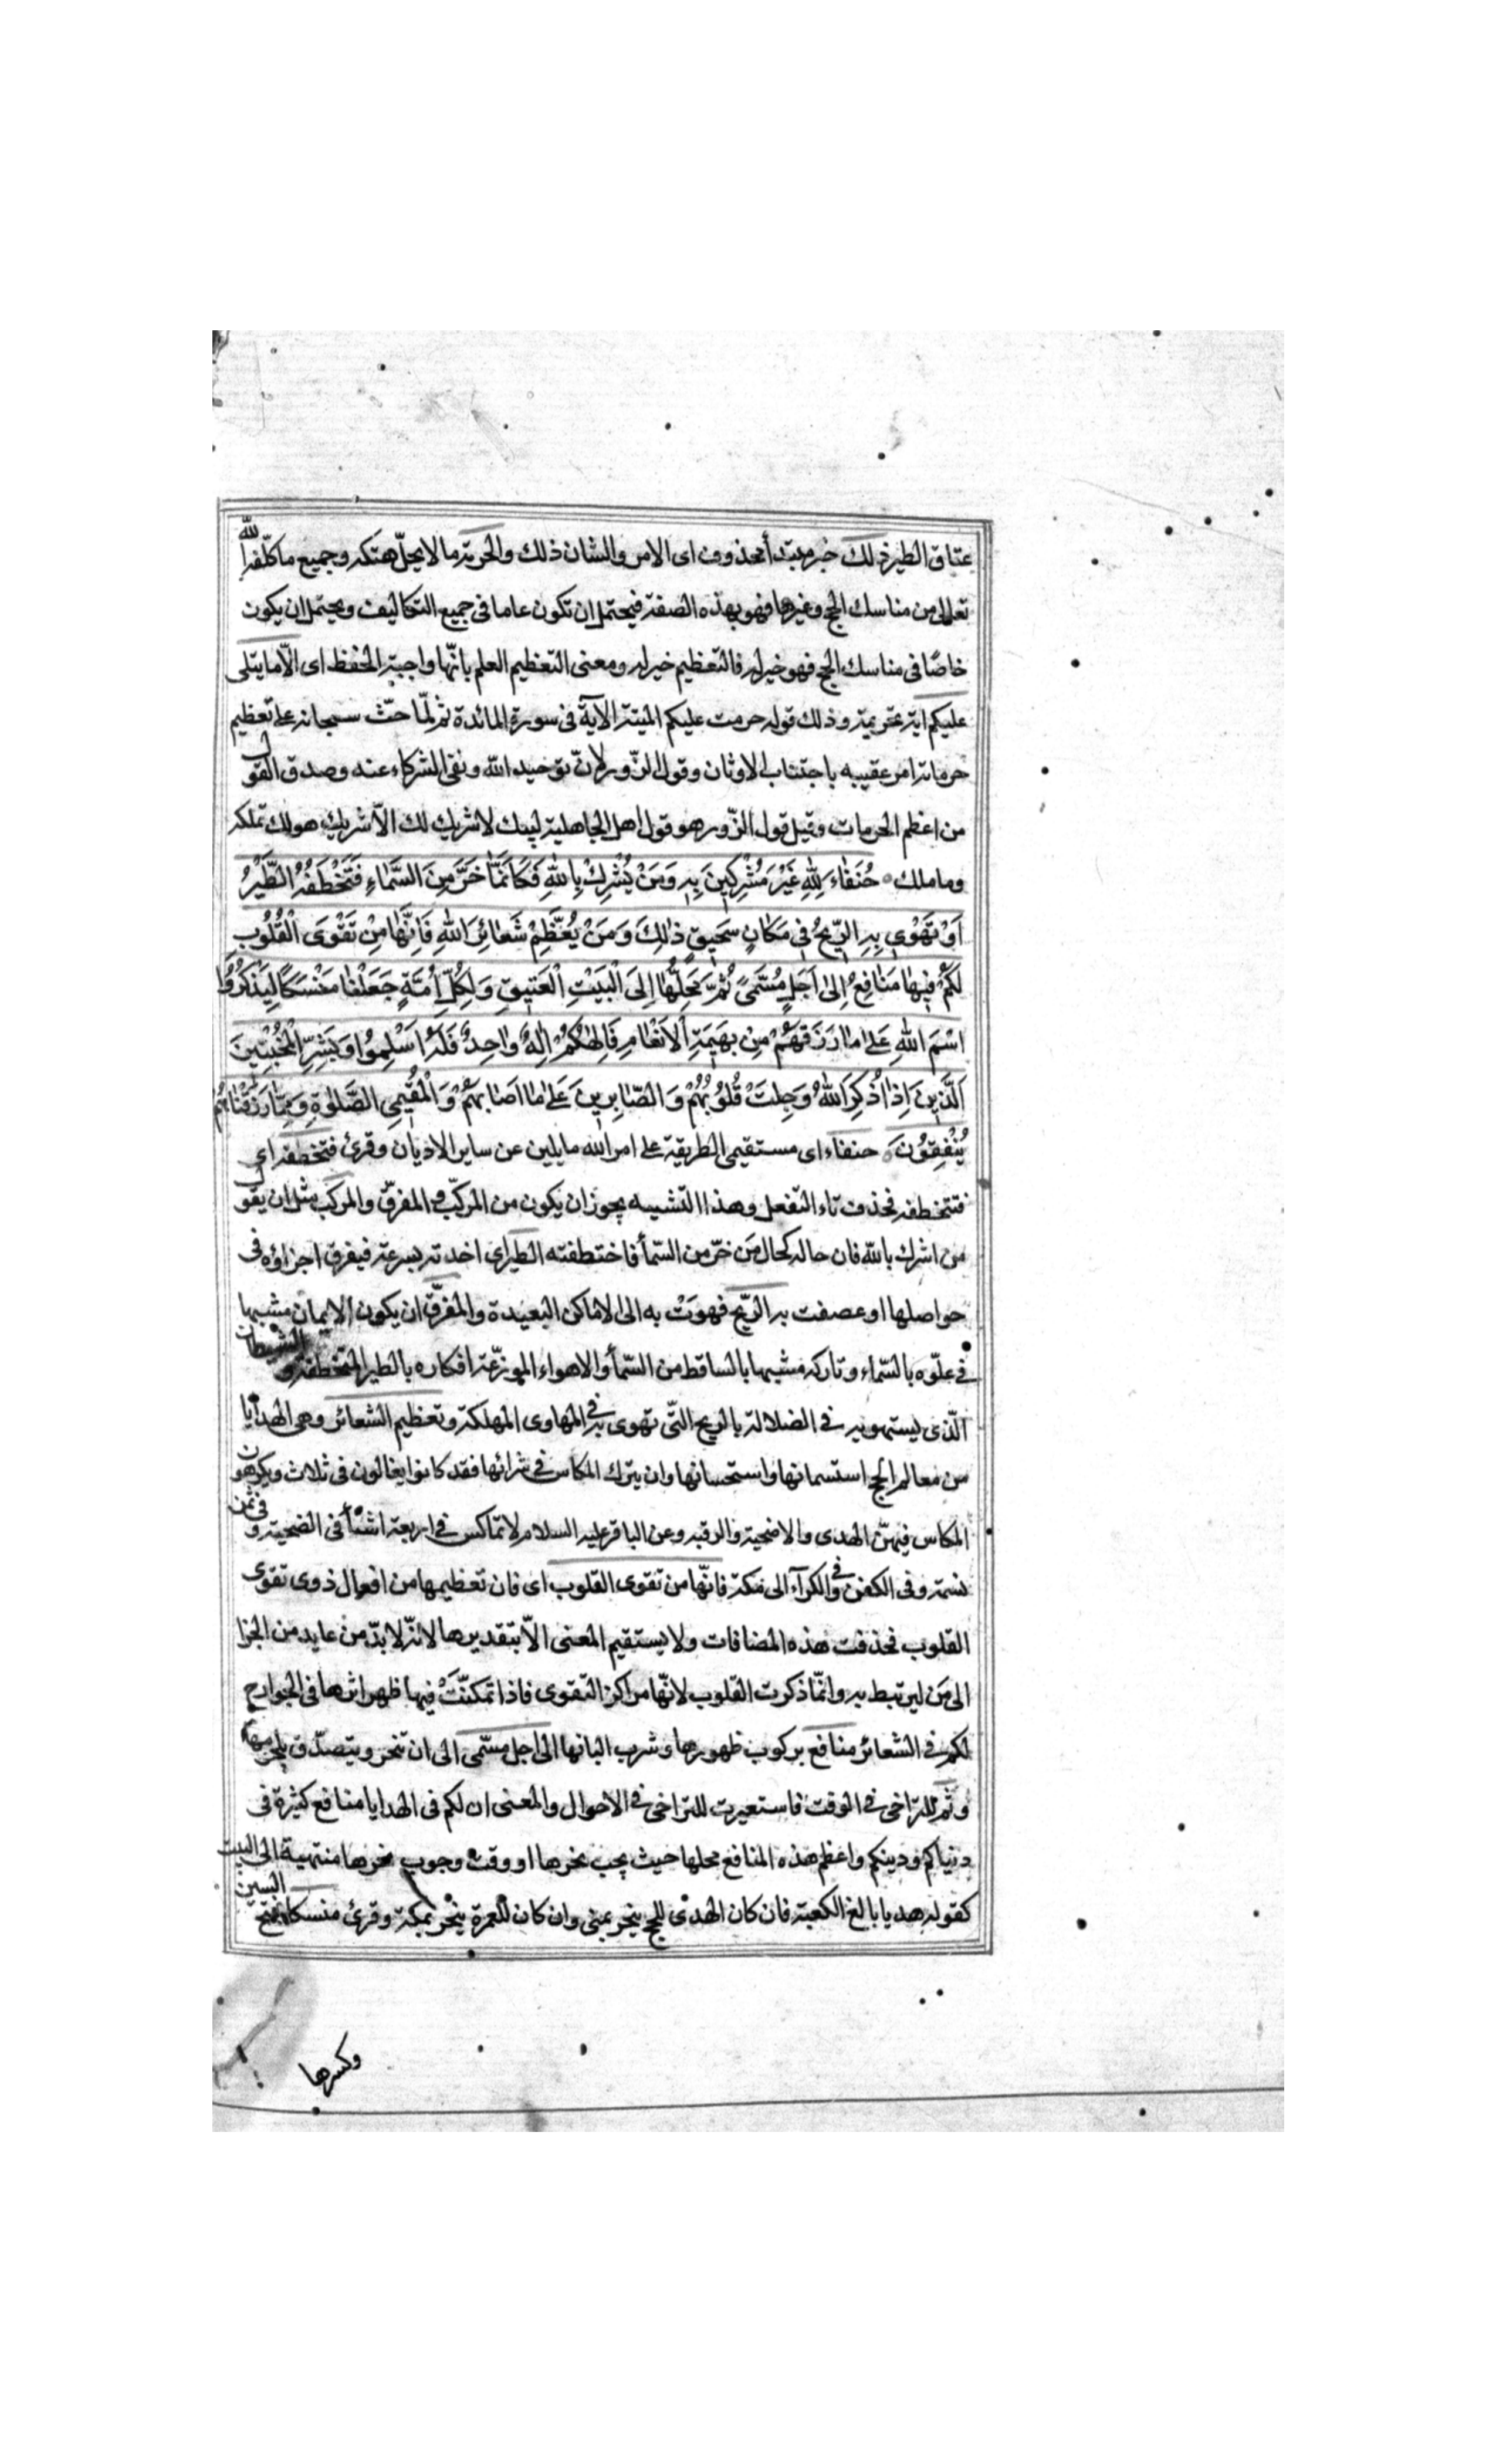 عتاق الطير ذلك خبر مبتدأ محذوف اى الامر والشان ذلك والحرمة ما لا يحلّ هتكه وجميع ما كلّفه الله
تعالى من مناسك الحج وغيرها فهو بهذه الصفة فيحتمل ان تكون عاما فى جميع التكاليف ويحتمل ان يكون
خاصًا فى مناسك الحج فهو خير له فالتعظيم خير له ومعنى التعظيم العلم بانّها واجبة الحفظ اى الّا ما يتلى
عليكم اية تحريمه وذلك قوله حرمت عليكم الميتة الآية فى سورة المائدة ثم لمّا حثّ سبحانه على تعظيم
حرماته امر عقيبه باجتناب الاوثان وقول الزّور لانّ توحيد الله ونفى الشركاء عنه وصدق القول
من اعظم الحرمات وقيل قول الزّور هو قول اهل الجاهلية لبيك لا شريك لك الّا شريك هو لك تملكه
وما ملك ه حُنَفَاءَ لِلّٰهِ غَيْرَ مُشْرِكِينَ بِهِ وَمَنْ يُشْرِكْ بِاللّٰهِ فَكَاَنَّمَا خَرَّ مِنَ السَّمَاءِ فَتَخْطَفُهُ الطَّيْرُ
اَوْ تَهْوِى بِهِ الرِّيحُ فِى مَكَانٍ سَحِيقٍ ذٰلِكَ وَمَنْ يُعَظِّمْ شَعَائِرَ اللّٰهِ فَاِنَّهَا مِنْ تَقْوَى الْقُلُوبِ
لَكُمْ فِيهَا مَنَافِعُ اِلٰى اَجَلٍ مُسَمًّى ثُمَّ مَحِلُّهَا اِلَى الْبَيْتِ الْعَتِيقِ وَلِكُلِّ اُمَّةٍ جَعَلْنَا مَنْسَكًا لِيَذْكُرُوا
اسْمَ اللّٰهِ عَلٰى مَا رَزَقَهُمْ مِنْ بَهِيمَةِ الْاَنْعَامِ فَاِلٰهُكُمْ اِلٰهٌ وَاحِدٌ فَلَهُ اَسْلِمُوا وَبَشِّرِ الْمُخْبِتِينَ
اَلَّذِينَ اِذَا ذُكِرَ اللّٰهُ وَجِلَتْ قُلُوبُهُمْ وَالصَّابِرِينَ عَلٰى مَا اَصَابَهُمْ وَالْمُقِيمِى الصَّلٰوةِ وَمِمَّا رَزَقْنَاهُمْ
يُنْفِقُونَ ه حنفاء اى مستقيمى الطريقة على امر الله مايلين عن ساير الاديان وقرئ فتخطفه اى
فتتخطفه فحذف تاء التفعل وهذا التشبيه يجوز ان يكون من المركّب و المفرّق والمركب مثل ان يقول
من اشرك بالله فان حاله كحال مَن خرّ من السّمأ فاختطفته الطير اى اخذته بسرعة فيفرق اجزاؤه فى
حواصلها او عصفت به الرّيح فهوَتْ به الى الاماكن البعيدة والمفرّق ان يكون الايمان مشبها
فى علّوه بالسّماء وتاركه مشبها بالساقط من السّمأ والاهواء الموزعّة افكاره بالطير المتخطفة و الشيطان
الّذى يستهويه فى الضلالة بالريح الّتى تهوى به فى المهاوى المهلكة وتعظيم الشعائر وهى الهدايا
من معالم الحج استسمانها واستحسانها وان يترك المكاس فى شرائها فقد كانوا يغالون فى ثلاث ويكرهون
المكاس فيهنّ الهدى والاضحية والرقبه وعن الباقر عليه السلام لا تماكس فى اربعة اشيأ فى الضحية و فى ثمن
نسمة وفى الكفن و فى الكرآء الى مكة فانّها من تقوى القلوب اى فان تعظيمها من افعال ذوى تقوى
القلوب فحذفت هذه المضافات ولا يستقيم المعنى الاّ بتقديرها لانّه لا بدّ من عايد من الجزا
الى مَن ليرتبط به وانّما ذكرت القلوب لانّها مراكز التقوى فاذا تمكنّتْ فيها ظهر اثرها فى الجوارح
لكم فى الشعائر منافع بركوب ظهورها وشرب البانها الى اجل مسّمى الى ان تنحر ويتصدّق بلحومها
وثمّ للتراخى فى الوقت فاستعيرت للتراخى فى الاحوال والمعنى ان لكم فى الهدايا منافع كثيرة فى
دنياكم ودينكم واعظم هذه المنافع محلها حيث يجب نحرها او وقت وجوب نحرها منتهية الى البيت
كقوله هديا بالغ الكعبة فان كان الهدى للحج ينحر بمنى وان كان للعمرة ينحر بمكة وقرئ منسكا بفتح السين
وكسرها